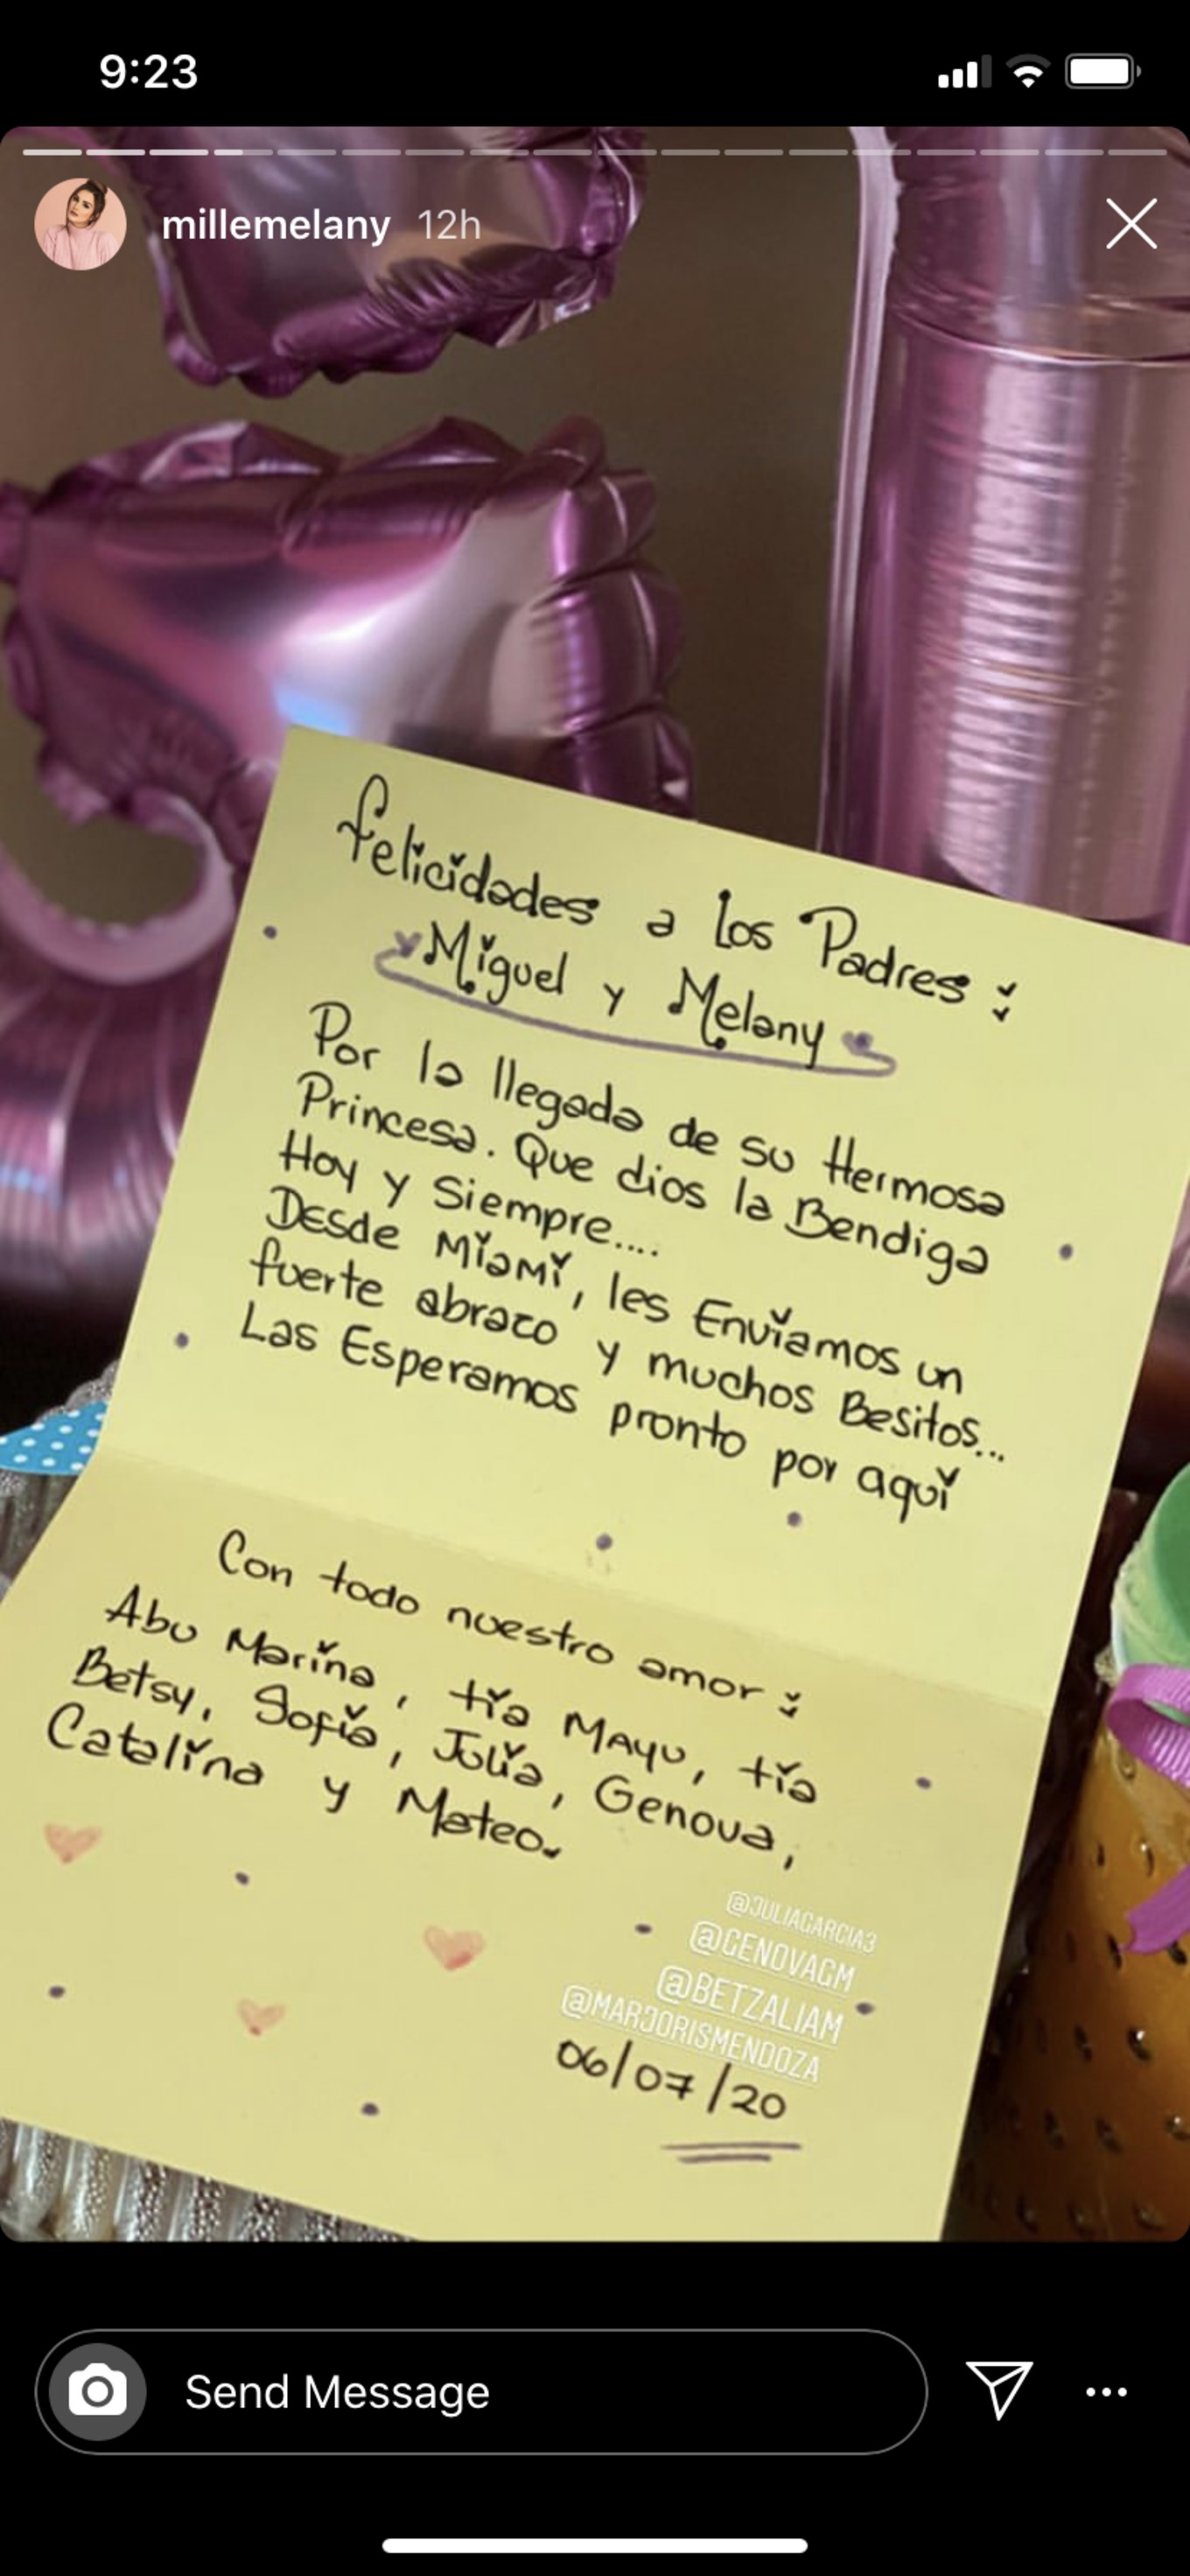 9:23
millemelany 12h
Felicidades a los Padres:
Miguel y Melany
Por la llegada de su Hermosa
Princesa. Que dios la Bendiga
Hoy y Siempre....
Desde Miami, les Envíamos un
fuerte abrazo y muchos Besitos...
Las Esperamos pronto por aquí
Con todo nuestro amor:
Abu Marina, tía Mayu, tía
Betsy, Sofía, Julia, Genova,
Catalina y Mateo.
@JULIAGARCIA3
@GENOVAGM
@BETZALIAM
@MARJORISMENDOZA
06/07/20
Send Message